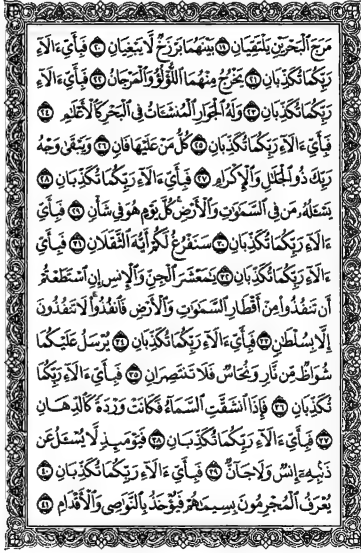 مَرَجَ الْبَحْرَيْنِ يَلْتَقِيَانِ ١٩ بَيْنَهُمَا بَرْزَخٌ لَّا يَبْغِيَانِ ٢٠ فَبِأَيِّ ءَالَآءِ
رَبِّكُمَا تُكَذِّبَانِ ٢١ يَخْرُجُ مِنْهُمَا اللُّؤْلُؤُ وَالْمَرْجَانُ ٢٢ فَبِأَيِّ ءَالَآءِ
رَبِّكُمَا تُكَذِّبَانِ ٢٣ وَلَهُ الْجَوَارِ الْمُنشَئَاتُ فِي الْبَحْرِ كَالْأَعْلَامِ ٢٤
فَبِأَيِّ ءَالَآءِ رَبِّكُمَا تُكَذِّبَانِ ٢٥ كُلُّ مَنْ عَلَيْهَا فَانٍ ٢٦ وَيَبْقَىٰ وَجْهُ
رَبِّكَ ذُو الْجَلَالِ وَالْإِكْرَامِ ٢٧ فَبِأَيِّ ءَالَآءِ رَبِّكُمَا تُكَذِّبَانِ ٢٨
يَسْئَلُهُ مَن فِي السَّمَٰوَٰتِ وَالْأَرْضِ كُلَّ يَوْمٍ هُوَ فِي شَأْنٍ ٢٩ فَبِأَيِّ
ءَالَآءِ رَبِّكُمَا تُكَذِّبَانِ ٣٠ سَنَفْرُغُ لَكُمْ أَيُّهَ الثَّقَلَانِ ٣١ فَبِأَيِّ
ءَالَآءِ رَبِّكُمَا تُكَذِّبَانِ ٣٢ يَٰمَعْشَرَ الْجِنِّ وَالْإِنسِ إِنِ اسْتَطَعْتُمْ
أَن تَنفُذُوا مِنْ أَقْطَارِ السَّمَٰوَٰتِ وَالْأَرْضِ فَانفُذُوا لَا تَنفُذُونَ
إِلَّا بِسُلْطَٰنٍ ٣٣ فَبِأَيِّ ءَالَآءِ رَبِّكُمَا تُكَذِّبَانِ ٣٤ يُرْسَلُ عَلَيْكُمَا
شُوَاظٌ مِّن نَّارٍ وَنُحَاسٌ فَلَا تَنتَصِرَانِ ٣٥ فَبِأَيِّ ءَالَآءِ رَبِّكُمَا
تُكَذِّبَانِ ٣٦ فَإِذَا انشَقَّتِ السَّمَآءُ فَكَانَتْ وَرْدَةً كَالدِّهَانِ
٣٧ فَبِأَيِّ ءَالَآءِ رَبِّكُمَا تُكَذِّبَانِ ٣٨ فَيَوْمَئِذٍ لَّا يُسْئَلُ عَن
ذَنبِهِ إِنسٌ وَلَا جَآنٌّ ٣٩ فَبِأَيِّ ءَالَآءِ رَبِّكُمَا تُكَذِّبَانِ ٤٠
يُعْرَفُ الْمُجْرِمُونَ بِسِيمَٰهُمْ فَيُؤْخَذُ بِالنَّوَٰصِي وَالْأَقْدَامِ ٤١